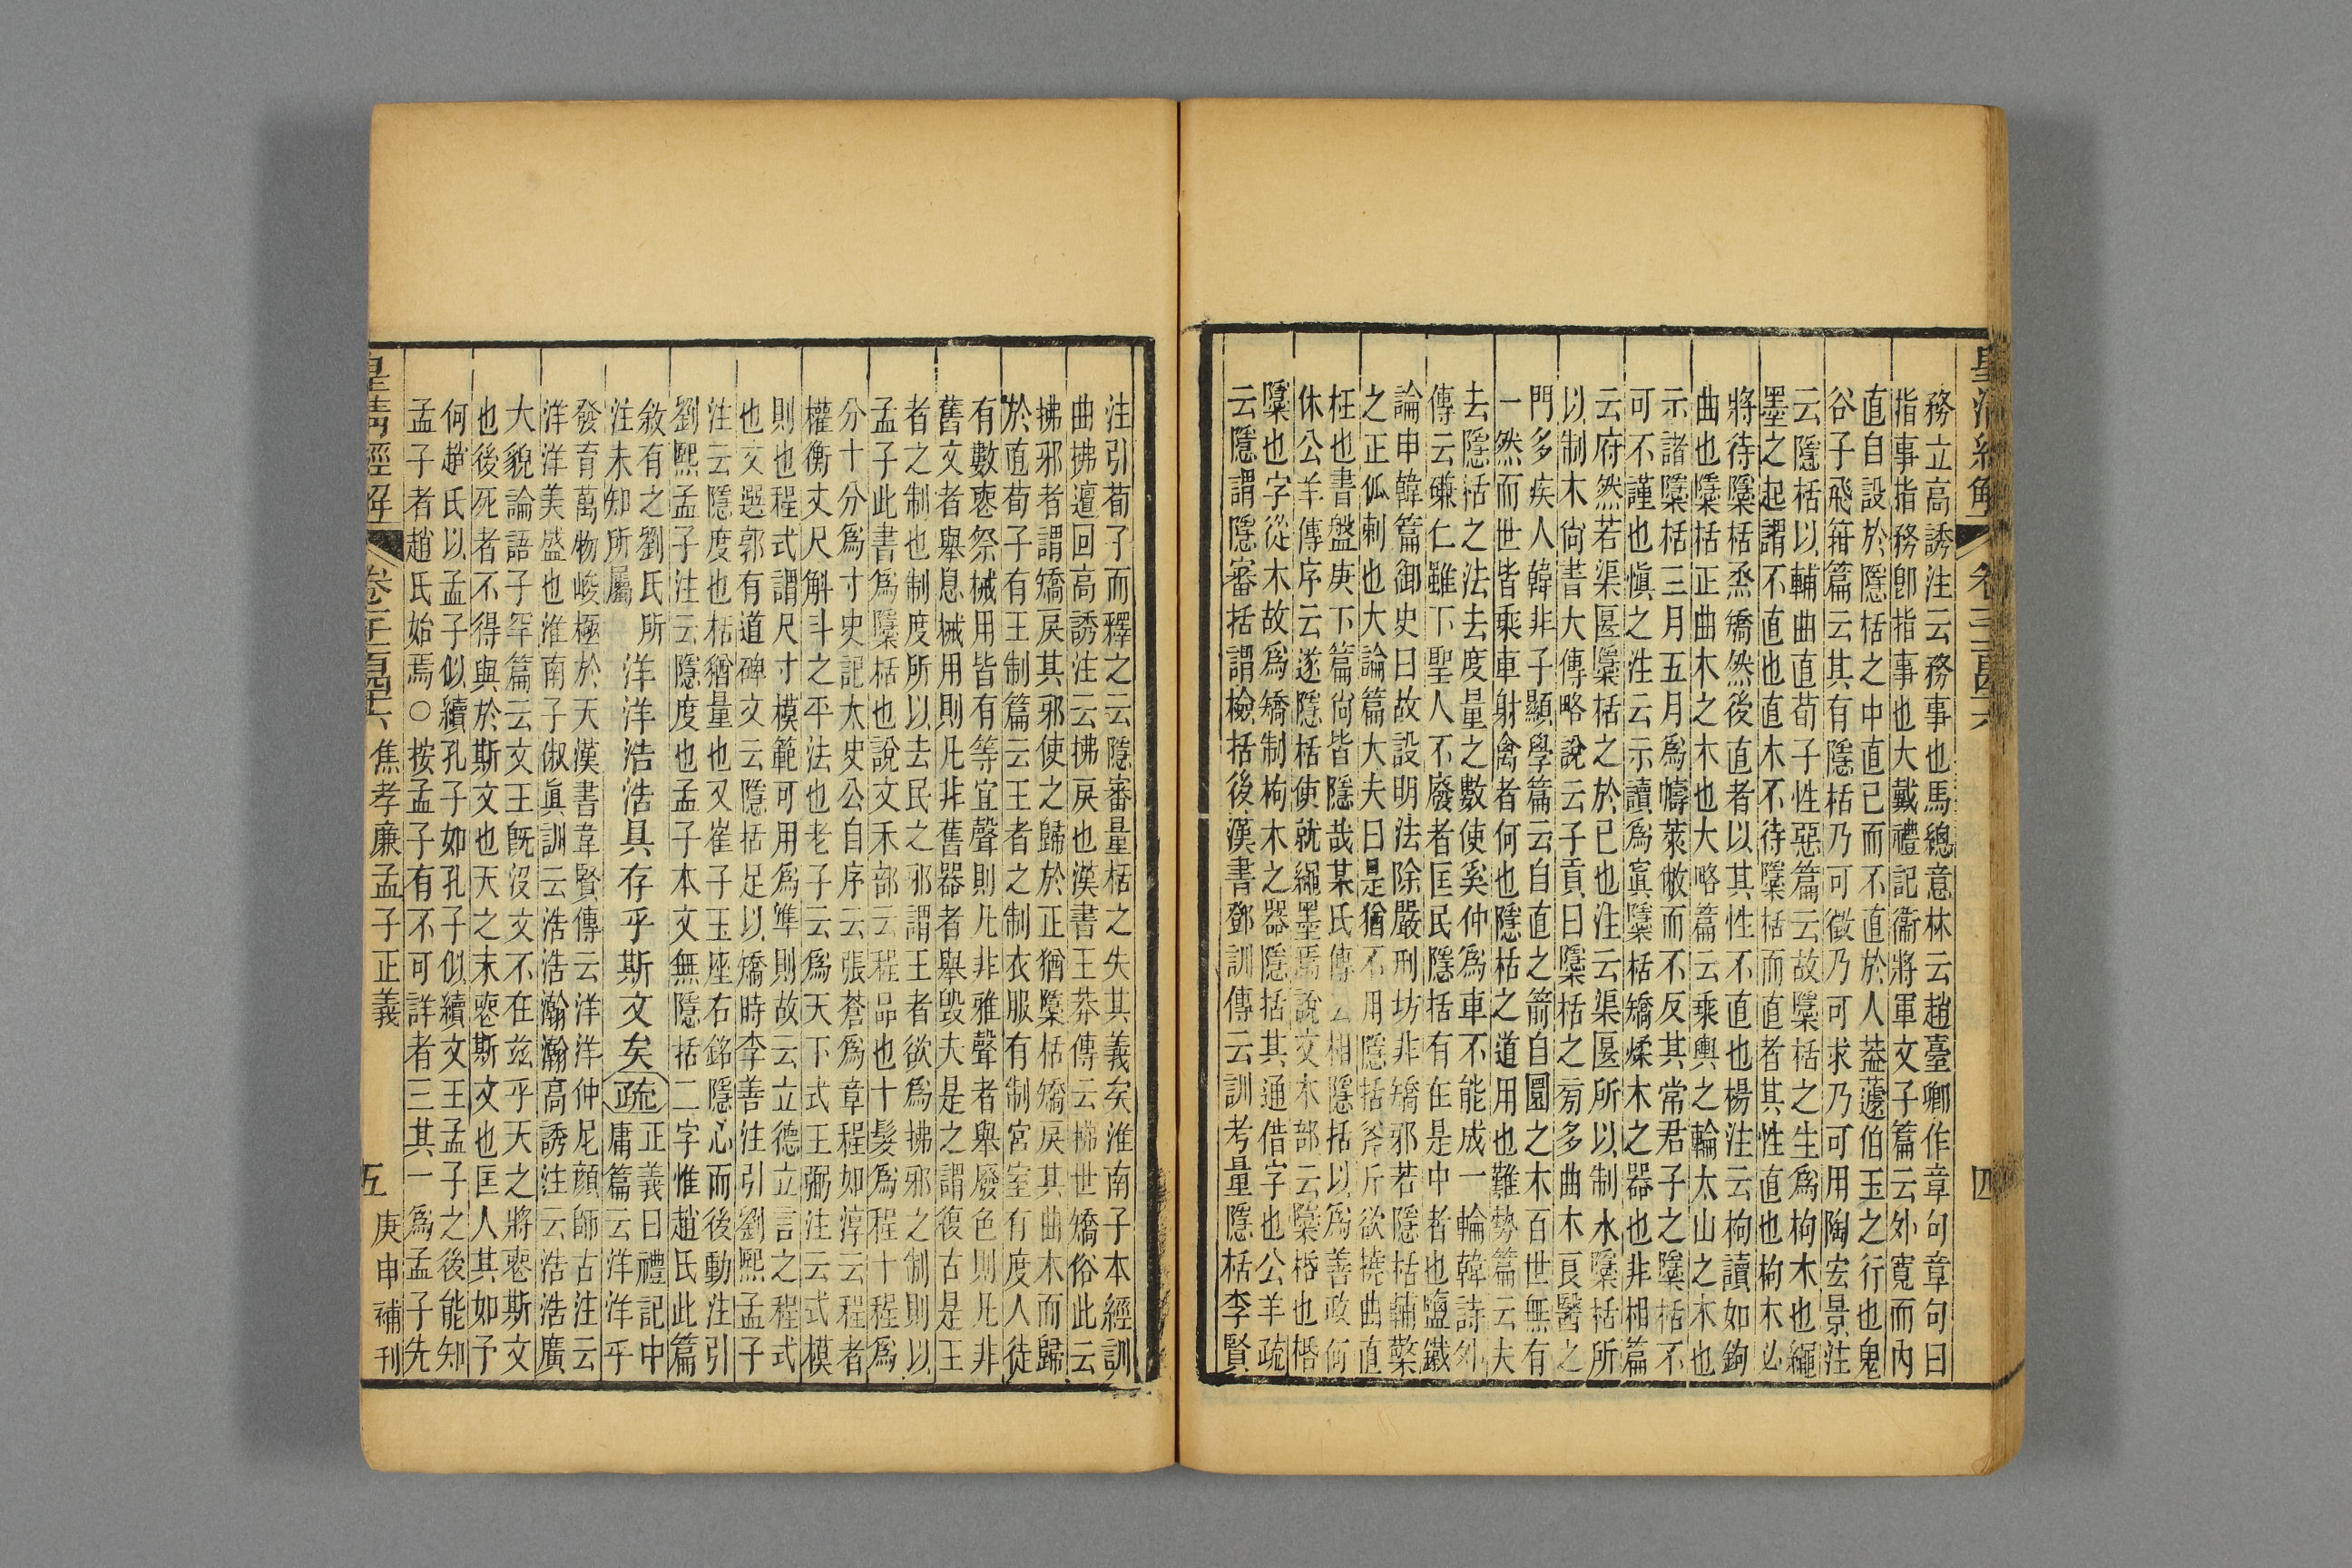 務立高誘注云務事也馬總意林云趙臺卿作章句章句曰
指事指務卽指事也大戴禮記衞將軍文子篇云外寬而內
直自設於隱栝之中直己而不直於人葢蘧伯玉之行也鬼
谷子飛箝篇云其有隱栝乃可徵乃可求乃可用陶宏景注
云隱栝以輔曲直荀子性惡篇云故檃栝之生爲枸木也繩
墨之起謂不直也直木不待檃栝而直者其性直也枸木必
將待檃栝烝矯然後直者以其性不直也楊注云枸讀如鉤
曲也檃栝正曲木之木也大略篇云乘輿之輪太山之木也
示諸檃栝三月五月爲幬菜敝而不反其常君子之檃栝不
可不謹也愼之注云示讀爲寘檃栝矯煣木之器也非相篇
云府然若渠匽檃栝之於己也注云渠匽所以制水檃栝所
以制木尙書大傳略說云子貢曰檃栝之旁多曲木良醫之
門多疾人韓非子顯學篇云自直之箭自圜之木百世無有
一然而世皆乘車射禽者何也隱栝之道用也難勢篇云夫
去隱栝之法去度量之數使奚仲爲車不能成一輪韓詩外
傳云磏仁雖下聖人不廢者匡民隱括有在是中者也鹽鐵
論申韓篇御史曰故設明法除嚴刑坊非矯邪若隱栝輔檠
之正弧剌也大論篇大夫曰是猶不用隱括斧斤欲撓曲直
枉也書盤庚下篇尙皆隱哉某氏傳云相隱括以爲善政何
休公羊傳序云遂隱栝使就繩墨焉說文木部云檃桰也桰
檃也字從木故爲矯制枸木之器隱括其通借字也公羊疏
云隱謂隱審括謂檢括後漢書鄧訓傳云訓考量隱栝李賢
皇淸經解
卷千一百四十六
四
注引荀子而釋之云隱審量栝之失其義矣淮南子本經訓
曲拂邅回高誘注云拂戾也漢書王莽傳云拂世矯俗此云
拂邪者謂矯戾其邪使之歸於正猶檃栝矯戾其曲木而歸
於直荀子有王制篇云王者之制衣服有制宮室有度人徒
有數喪祭械用皆有等宜聲則凡非雅聲者舉廢色則凡非
舊文者舉息械用則凡非舊器者舉毀夫是之謂復古是王
者之制也制度所以去民之邪謂王者欲爲拂邪之制則以
孟子此書爲檃栝也說文禾部云程品也十髮爲程十程爲
分十分爲寸史記太史公自序云張蒼爲章程如淳云程者
權衡丈尺斛斗之平法也老子云爲天下式王弼注云式模
則也程式謂尺寸模範可用爲準則故云立德立言之程式
也文選郭有道碑文云隱栝足以矯時李善注引劉熙孟子
注云隱度也栝猶量也又崔子玉座右銘隱心而後動注引
劉熙孟子注云隱度也孟子本文無隱括二字惟趙氏此篇
敘有之劉氏所
注未知所屬
洋洋浩浩具存乎斯文矣
疏
正義曰禮記中
庸篇云洋洋乎
發育萬物峻極於天漢書韋賢傳云洋洋仲尼顏師古注云
洋洋美盛也淮南子俶眞訓云浩浩瀚瀚高誘注云浩浩廣
大貌論語子罕篇云文王旣沒文不在茲乎天之將喪斯文
也後死者不得與於斯文也天之未喪斯文也匡人其如予
何趙氏以孟子似續孔子如孔子似續文王孟子之後能知
孟子者趙氏始焉○按孟子有不可詳者三其一爲孟子先
皇清經解
卷千一百四十六
焦孝廉孟子正義
五
庚申補刊